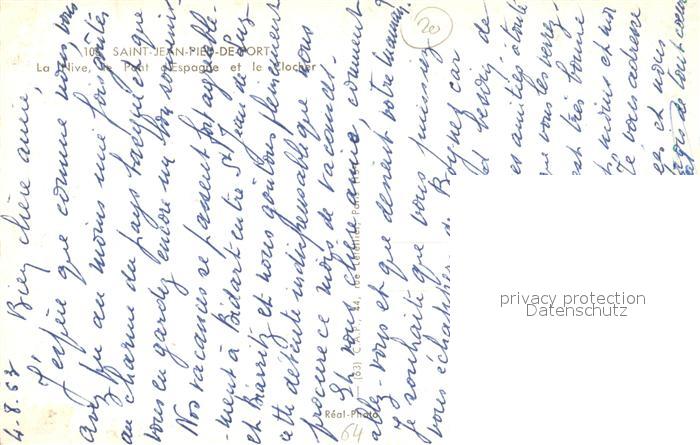 10 SAINT-JEAN-PIED-DE-PORT
La Nive, le Pont d'Espagne et le Clocher
20
4-8-63
Bien chère amie,
J'espère que comme nous vous
avez pu au moins une fois goûter
au charme du pays basque et que
vous en gardez encore un bon souvenir
Nos vacances se passent fort agréable-
-ment à Bidart entre St Jean de Luz
et Biarritz et nous goûtons pleinement
cette détente indispensable que nous
procure ce mois de vacances.
Et vous chère amie, comment
allez-vous et que devient votre
Je souhaite que vous puissiez
vous échapper de car
et de
es amitiés
que vous les verrez
est très bonne
moins et
Je vous adresse
et nous
de tout cœur
Réal-Photo
64
privacy protection
Datenschutz